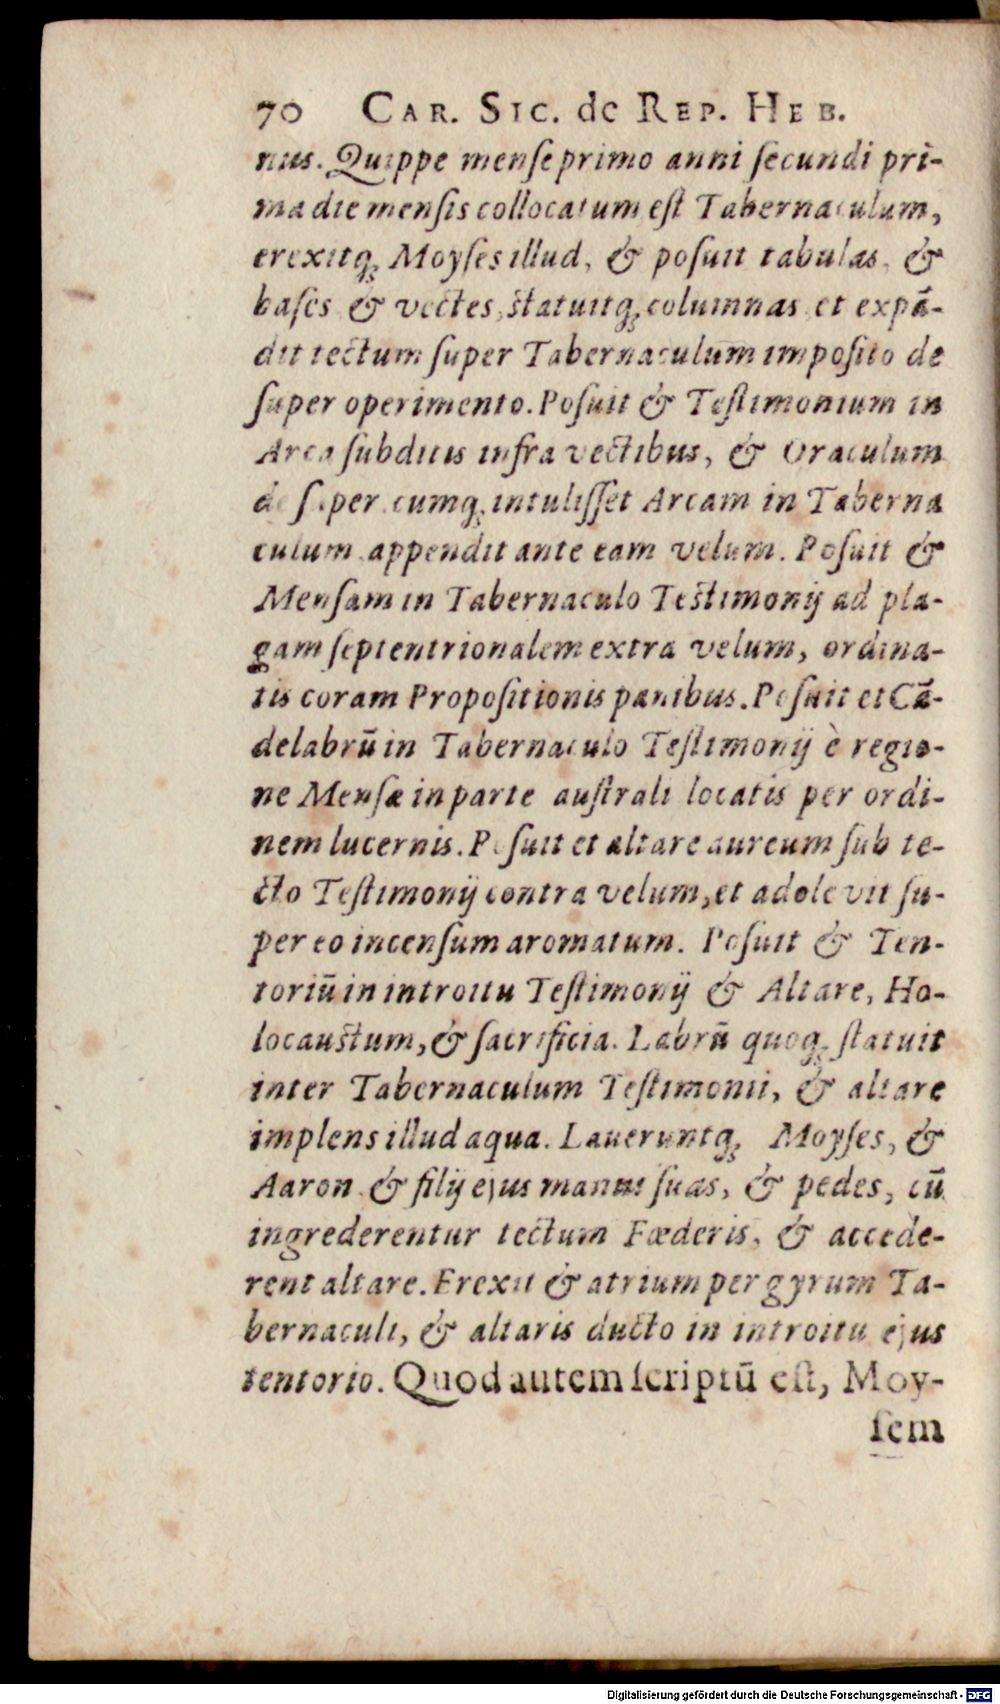 70 CAR. SIC. de REP. HEB.
nus. Quippe mense primo anni secundi pri-
ma die mensis collocatum est Tabernaculum,
erexitq; Moyses illud, & posuit tabulas, &
bases & vectes, statuitq; columnas, et expā-
dit tectum super Tabernaculum imposito de
super operimento. Posuit & Testimonium in
Arca subditis infra vectibus, & Oraculum
de super. cumq; intulisset Arcam in Taberna
culum, appendit ante eam velum. Posuit &
Mensam in Tabernaculo Testimonij ad pla-
gam septentrionalem extra velum, ordina-
tis coram Propositionis panibus. Posuit et Cā-
delabrū in Tabernaculo Testimonij è regio-
ne Mensæ in parte australi locatis per ordi-
nem lucernis. Posuit et altare aureum sub te-
cto Testimonij contra velum, et adolevit su-
per eo incensum aromatum. Posuit & Ten-
toriū in introitu Testimonij & Altare, Ho-
locaustum, & sacrificia. Labrū quoq; statuit
inter Tabernaculum Testimonii, & altare
implens illud aqua. Laueruntq; Moyses, &
Aaron & filij ejus manus suas, & pedes, cū
ingrederentur tectum Fœderis, & accede-
rent altare. Erexit & atrium per gyrum Ta-
bernaculi, & altaris ducto in introitu ejus
tentorio. Quod autem scriptū est, Moy-
sem
Digitalisierung gefördert durch die Deutsche Forschungsgemeinschaft - DFG